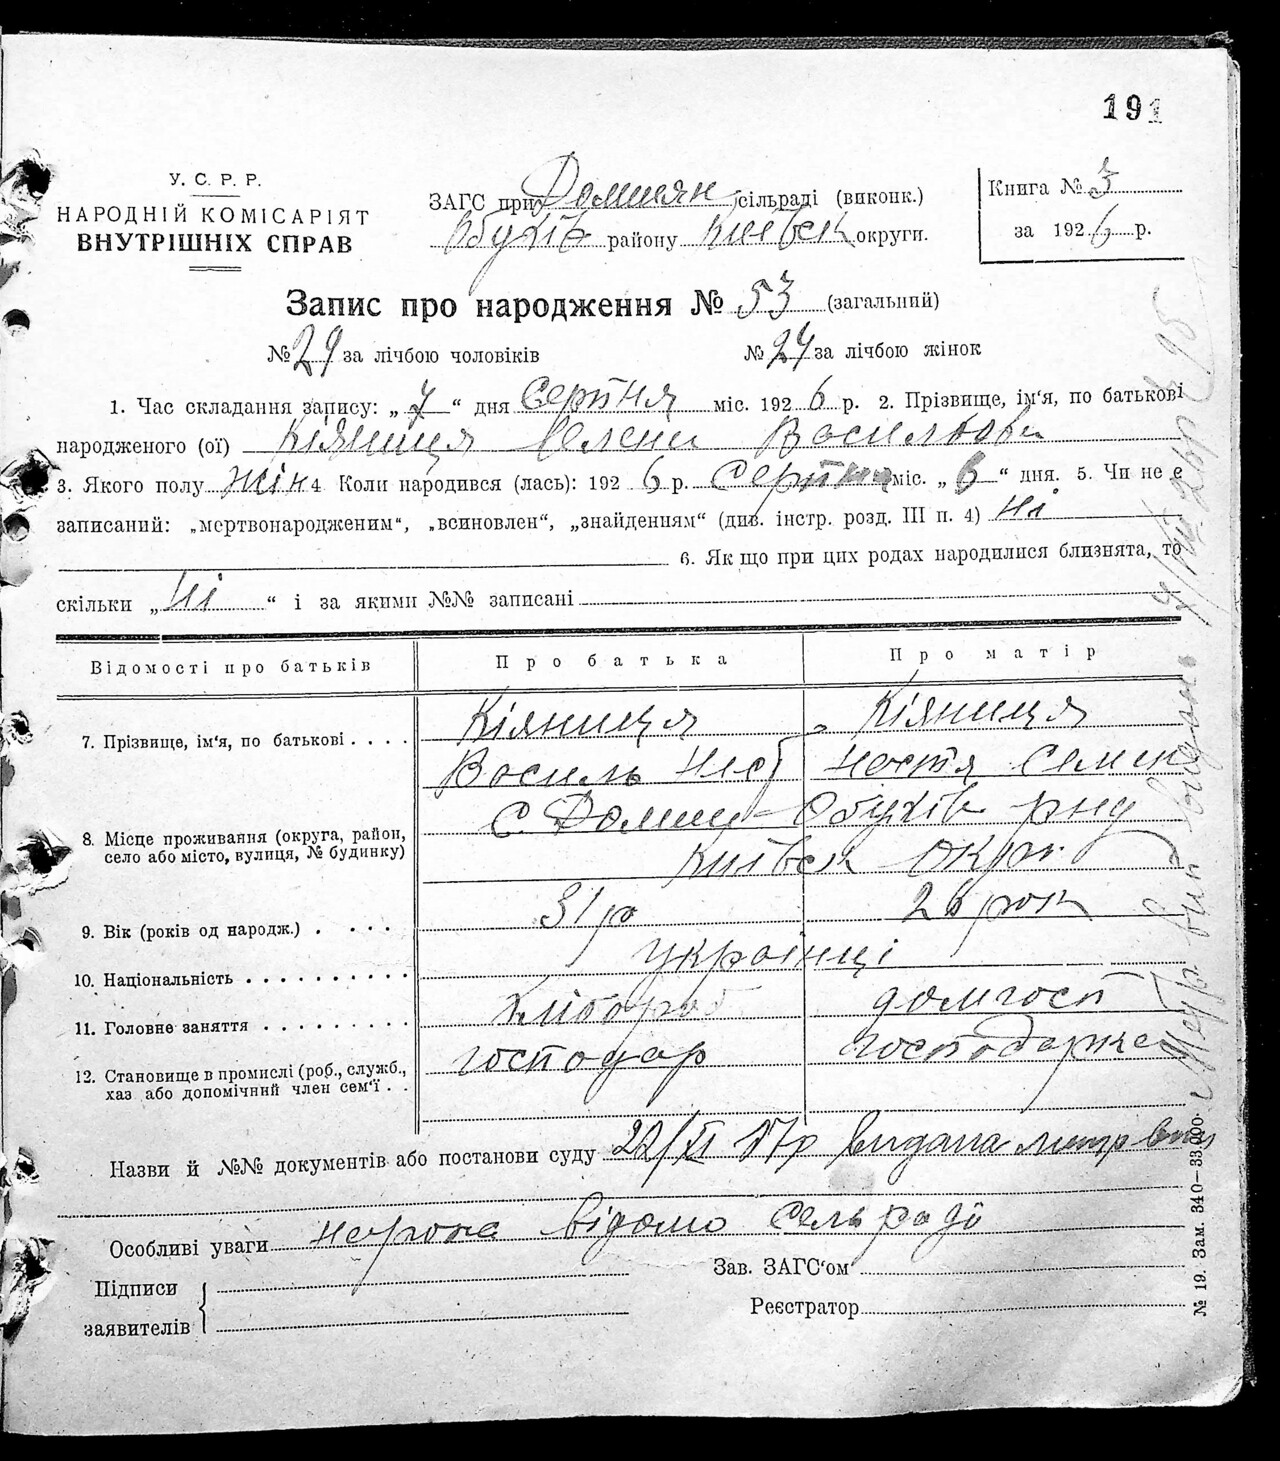 191
У. С. Р. Р.
НАРОДНІЙ КОМІСАРІЯТ
ВНУТРІШНІХ СПРАВ
ЗАГС при Домнян сільраді (виконк.)
Обухів району Київськ округи.
Книга № 3
за 1926 р.
Запис про народження № 53 (загальний)
№ 29 за лічбою чоловіків № 24 за лічбою жінок
1. Час складання запису: „ 7 “ дня Серпня міс. 1926 р. 2. Прізвище, ім‘я, по батькові
народженого (ої) Кіяниця Олена Васильовн
3. Якого полу жін 4 Коли народився (лась): 1926 р. Серпня міс. „ 6 “ дня. 5. Чи не є
записаний: „мертвонародженим“, „всиновлен“, „знайденням“ (див. інстр. розд. III п. 4) ні
6. Як що при цих родах народилися близнята, то
скільки „ ні “ і за якими №№ записані
Відомості про батьків Про батька Про матір
7. Прізвище, ім‘я, по батькові . . . . Кіяниця Кіяниця
Василь Нест Настя Семен
8. Місце проживання (округа, район, село або місто, вулиця, № будинку) с. Домни Обухів рну
Київськ окрг.
9. Вік (років од народж.) . . . . 31 р 26 рок
10. Національність . . . . . . . . . . українці
11. Головне заняття . . . . . . . . . хлібороб домгосп
12. Становище в промислі (роб., служб., хаз або допомічний член сем‘ї . . господар господарка
Назви й №№ документів або постанови суду 22/XI 17р видана метр вип
Особливі уваги нарожд відомо сельраді
Підписи заявителів
Зав. ЗАГС‘ом
Реєстратор
№ 19. Зам. 340—33.000.